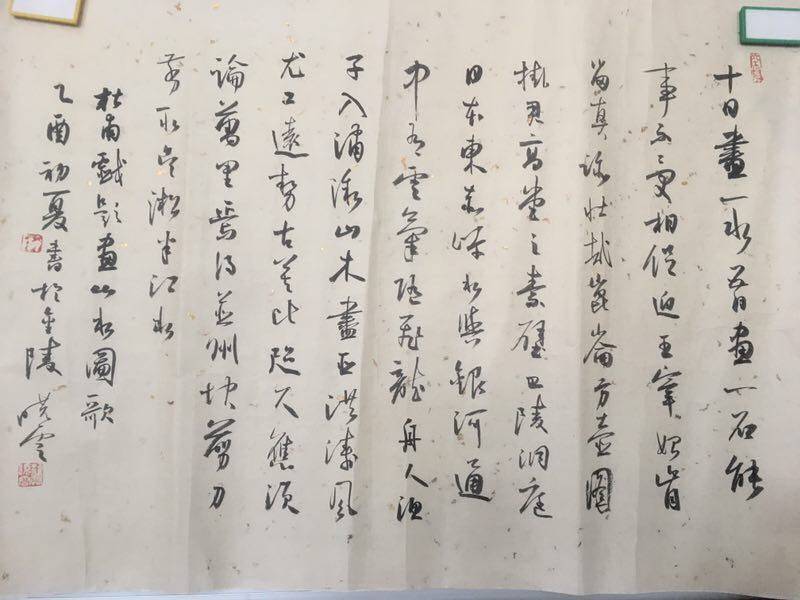 十日畫一水五日畫一石能
事不受相促迫王宰始肯
留真跡壯哉崑崙方壺圖
掛君高堂之素壁巴陵洞庭
日本東赤岸水與銀河通
中有雲氣隨飛龍舟人漁
子入浦漵山木盡亞洪濤風
尤工遠勢古莫比咫尺應須
論萬里焉得並州快剪刀
剪取吳淞半江水
杜甫戲題畫山水圖歌
乙酉初夏書於金陵曉雲